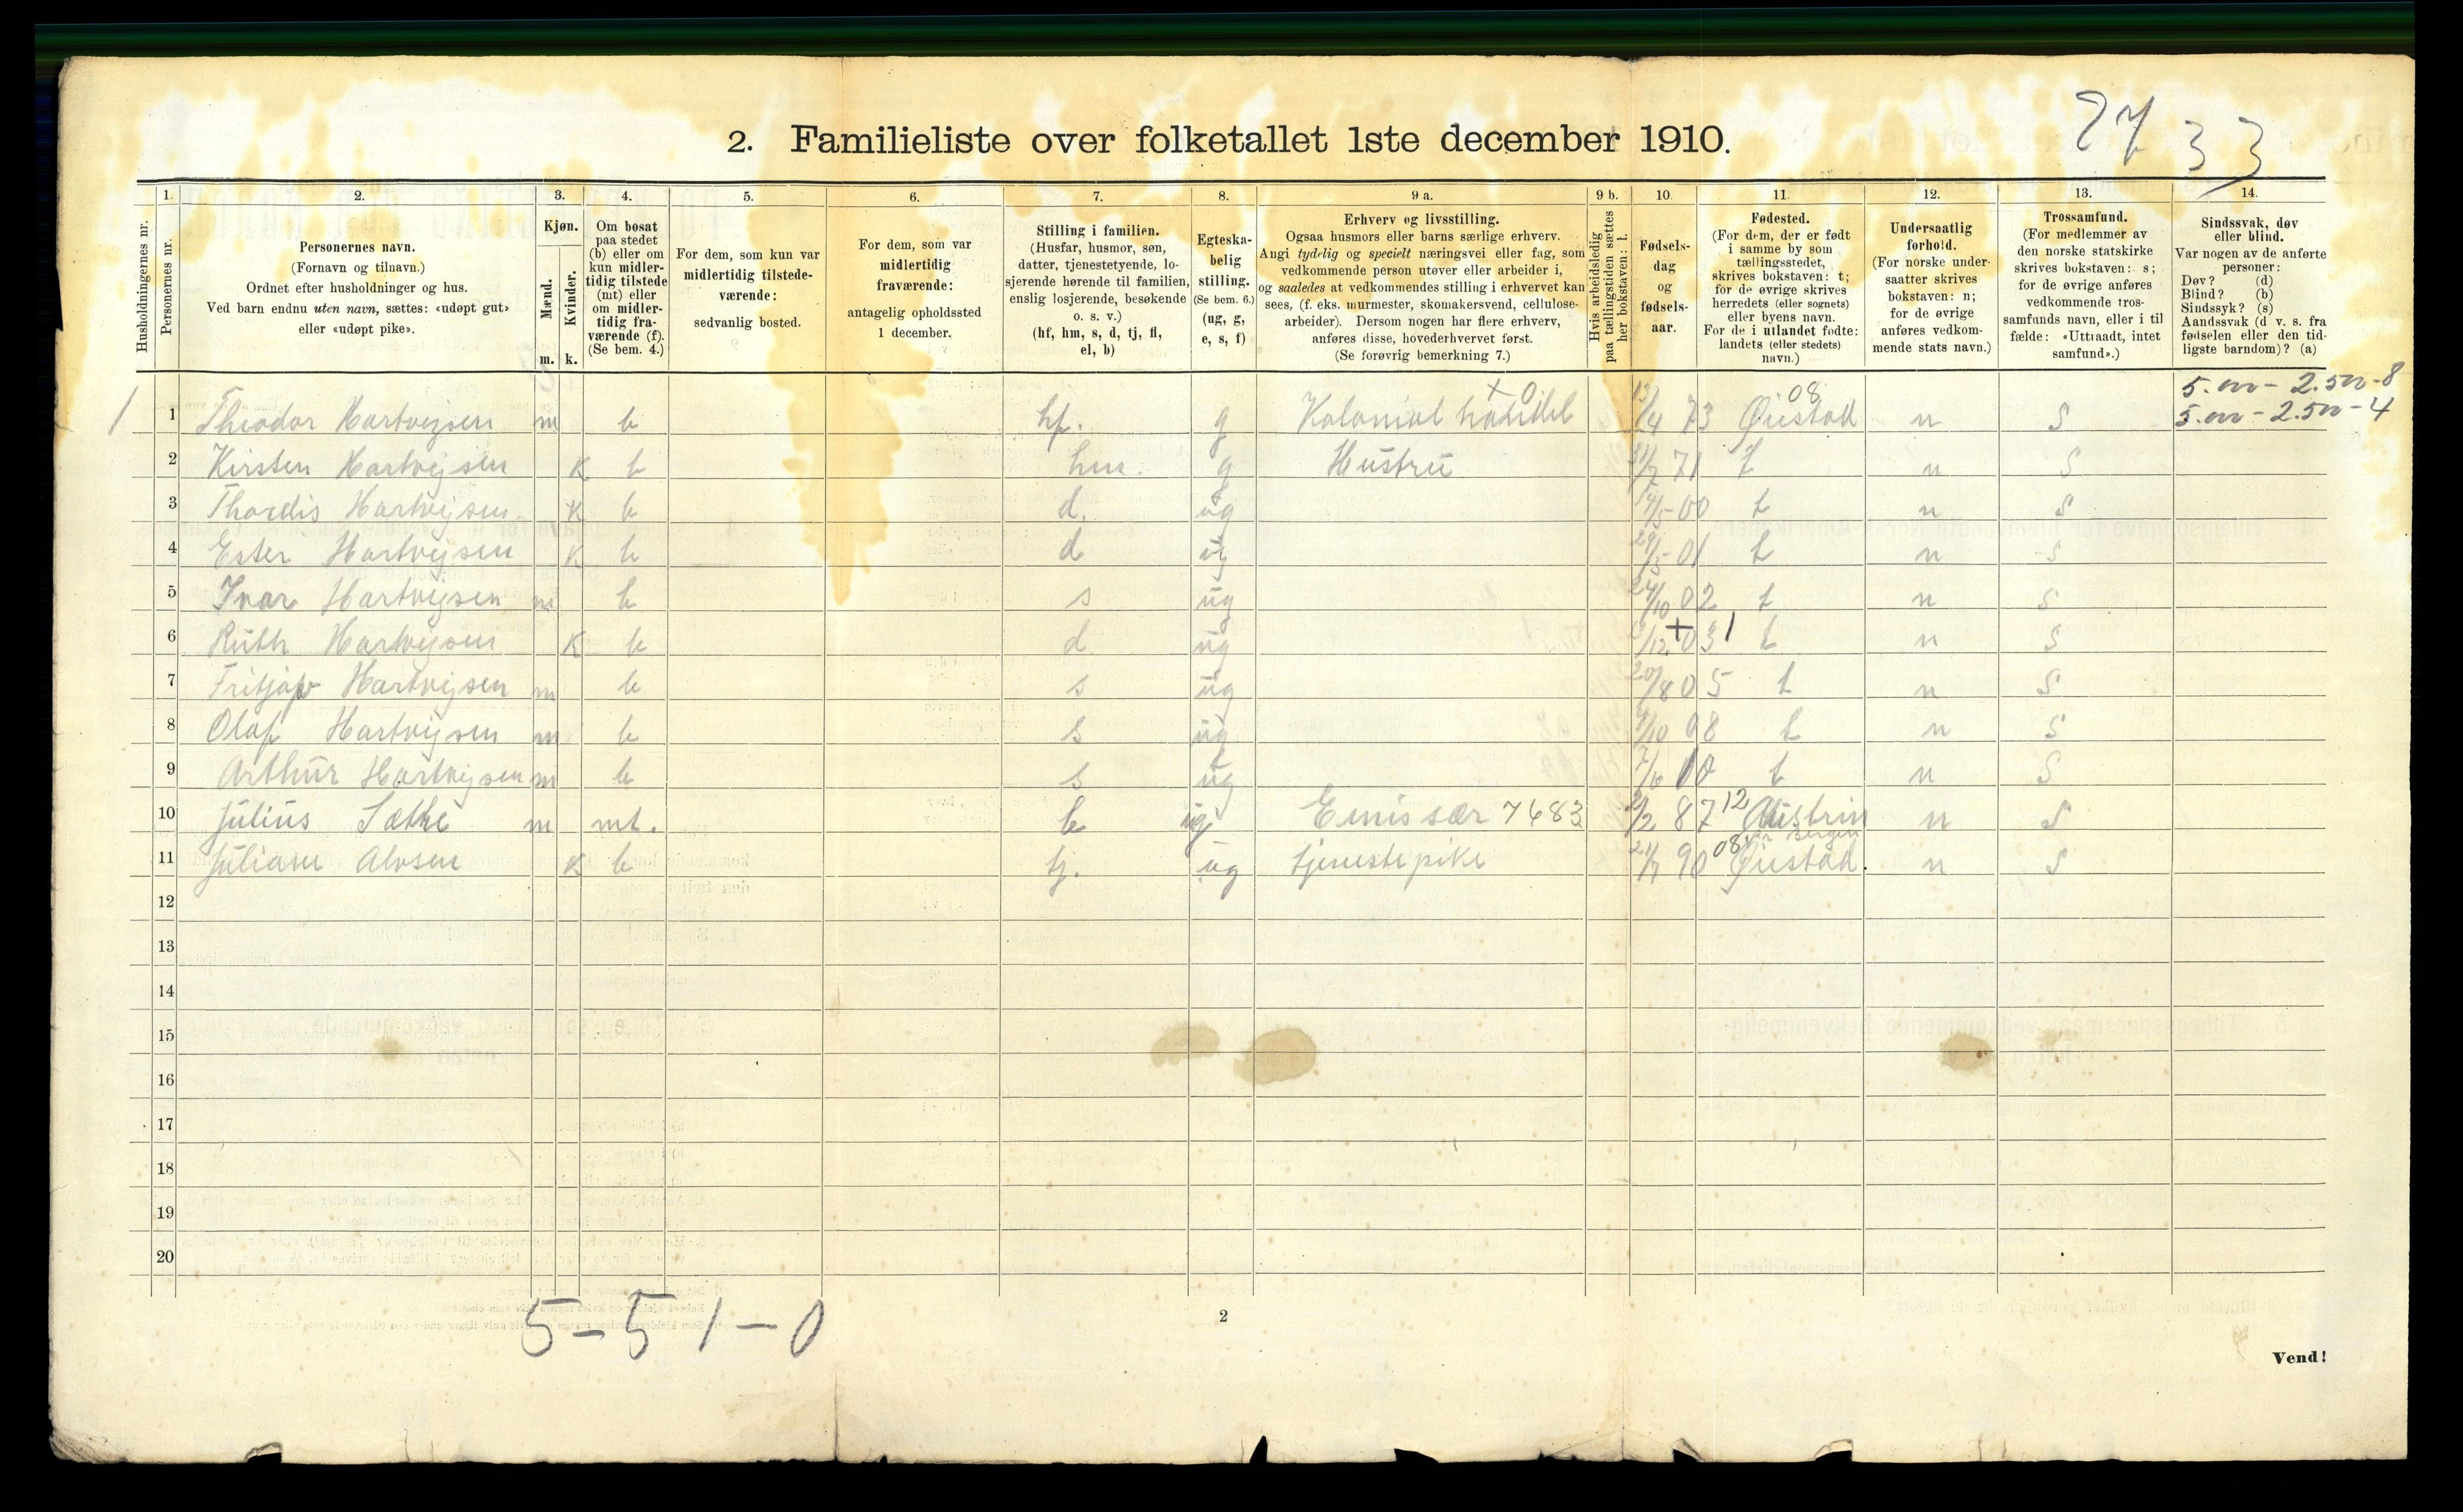 27 33
2. Familieliste over folketallet 1ste december 1910.
Husholdningernes nr.
1.
Personernes nr.
2.
Personernes navn.
(Fornavn og tilnavn.)
Ordnet efter husholdninger og hus.
Ved barn endnu uten navn, sættes: «udøpt gut»
eller «udøpt pike».
3.
Kjøn.
Mænd.
Kvinder.
m. k.
4.
Om bosat
paa stedet
(b) eller om
kun midler-
tidig tilstede
(mt) eller
om midler-
tidig fra-
værende (f).
(Se bem. 4.)
5.
For dem, som kun var
midlertidig tilstede-
værende:
sedvanlig bosted.
6.
For dem, som var
midlertidig
fraværende:
antagelig opholdssted
1 december.
7.
Stilling i familien.
(Husfar, husmor, søn,
datter, tjenestetyende, lo-
sjerende hørende til familien,
enslig losjerende, besøkende
o. s. v.)
(hf, hm, s, d, tj, fl,
el, b)
8.
Egteska-
belig
stilling.
(Se bem. 6.)
(ug, g,
e, s, f)
9 a.
Erhverv og livsstilling.
Ogsaa husmors eller barns særlige erhverv.
Angi tydelig og specielt næringsvei eller fag, som
vedkommende person utøver eller arbeider i,
og saaledes at vedkommendes stilling i erhvervet kan
sees, (f. eks. murmester, skomakersvend, cellulose-
arbeider). Dersom nogen har flere erhverv,
anføres disse, hovederhvervet først.
(Se forøvrig bemerkning 7.)
9 b.
Hvis arbeidsledig
paa tællingstiden sættes
her bokstaven: l.
10.
Fødsels-
dag
og
fødsels-
aar.
11.
Fødested.
(For dem, der er født
i samme by som
tællingsstedet,
skrives bokstaven: t;
for de øvrige skrives
herredets (eller sognets)
eller byens navn.
For de i utlandet fødte:
landets (eller stedets)
navn.)
12.
Undersaatlig
forhold.
(For norske under-
saatter skrives
bokstaven: n;
for de øvrige
anføres vedkom-
mende stats navn.)
13.
Trossamfund.
(For medlemmer av
den norske statskirke
skrives bokstaven: s;
for de øvrige anføres
vedkommende tros-
samfunds navn, eller i til-
fælde: «Uttraadt, intet
samfund».)
14.
Sindssvak, døv
eller blind.
Var nogen av de anførte
personer:
Døv? (d)
Blind? (b)
Sindssyk? (s)
Aandssvak (d. v. s. fra
fødselen eller den tid-
ligste barndom)? (a)
1 1 Theodor Hartvigsen m b hf. g Kolonial handel 13/4 73 Øiestad n S
2 Kirsten Hartvigsen k b hm. g Hustru 31/7 71 t n S
3 Thordis Hartvigsen k b d. ug 14/5 00 t n S
4 Ester Hartvigsen k b d ug 29/5 01 t n S
5 Ivar Hartvigsen m b s ug 24/10 02 t n S
6 Ruth Hartvigsen k b d ug t n S
7 Fritjof Hartvigsen m b s ug 20/8 05 t n S
8 Olaf Hartvigsen m b s ug 08 t n S
9 Arthur Hartvigsen m b s ug t n S
10 Julius Sæthe m mt. b ug Emissær 7683 87 12 n S
11 Juliane Alvsen k b tj. ug tjenestepike 90 08 Øiestad. n S
12
13
14
15
16
17
18
19
20
5-5 1-0
2
Vend!